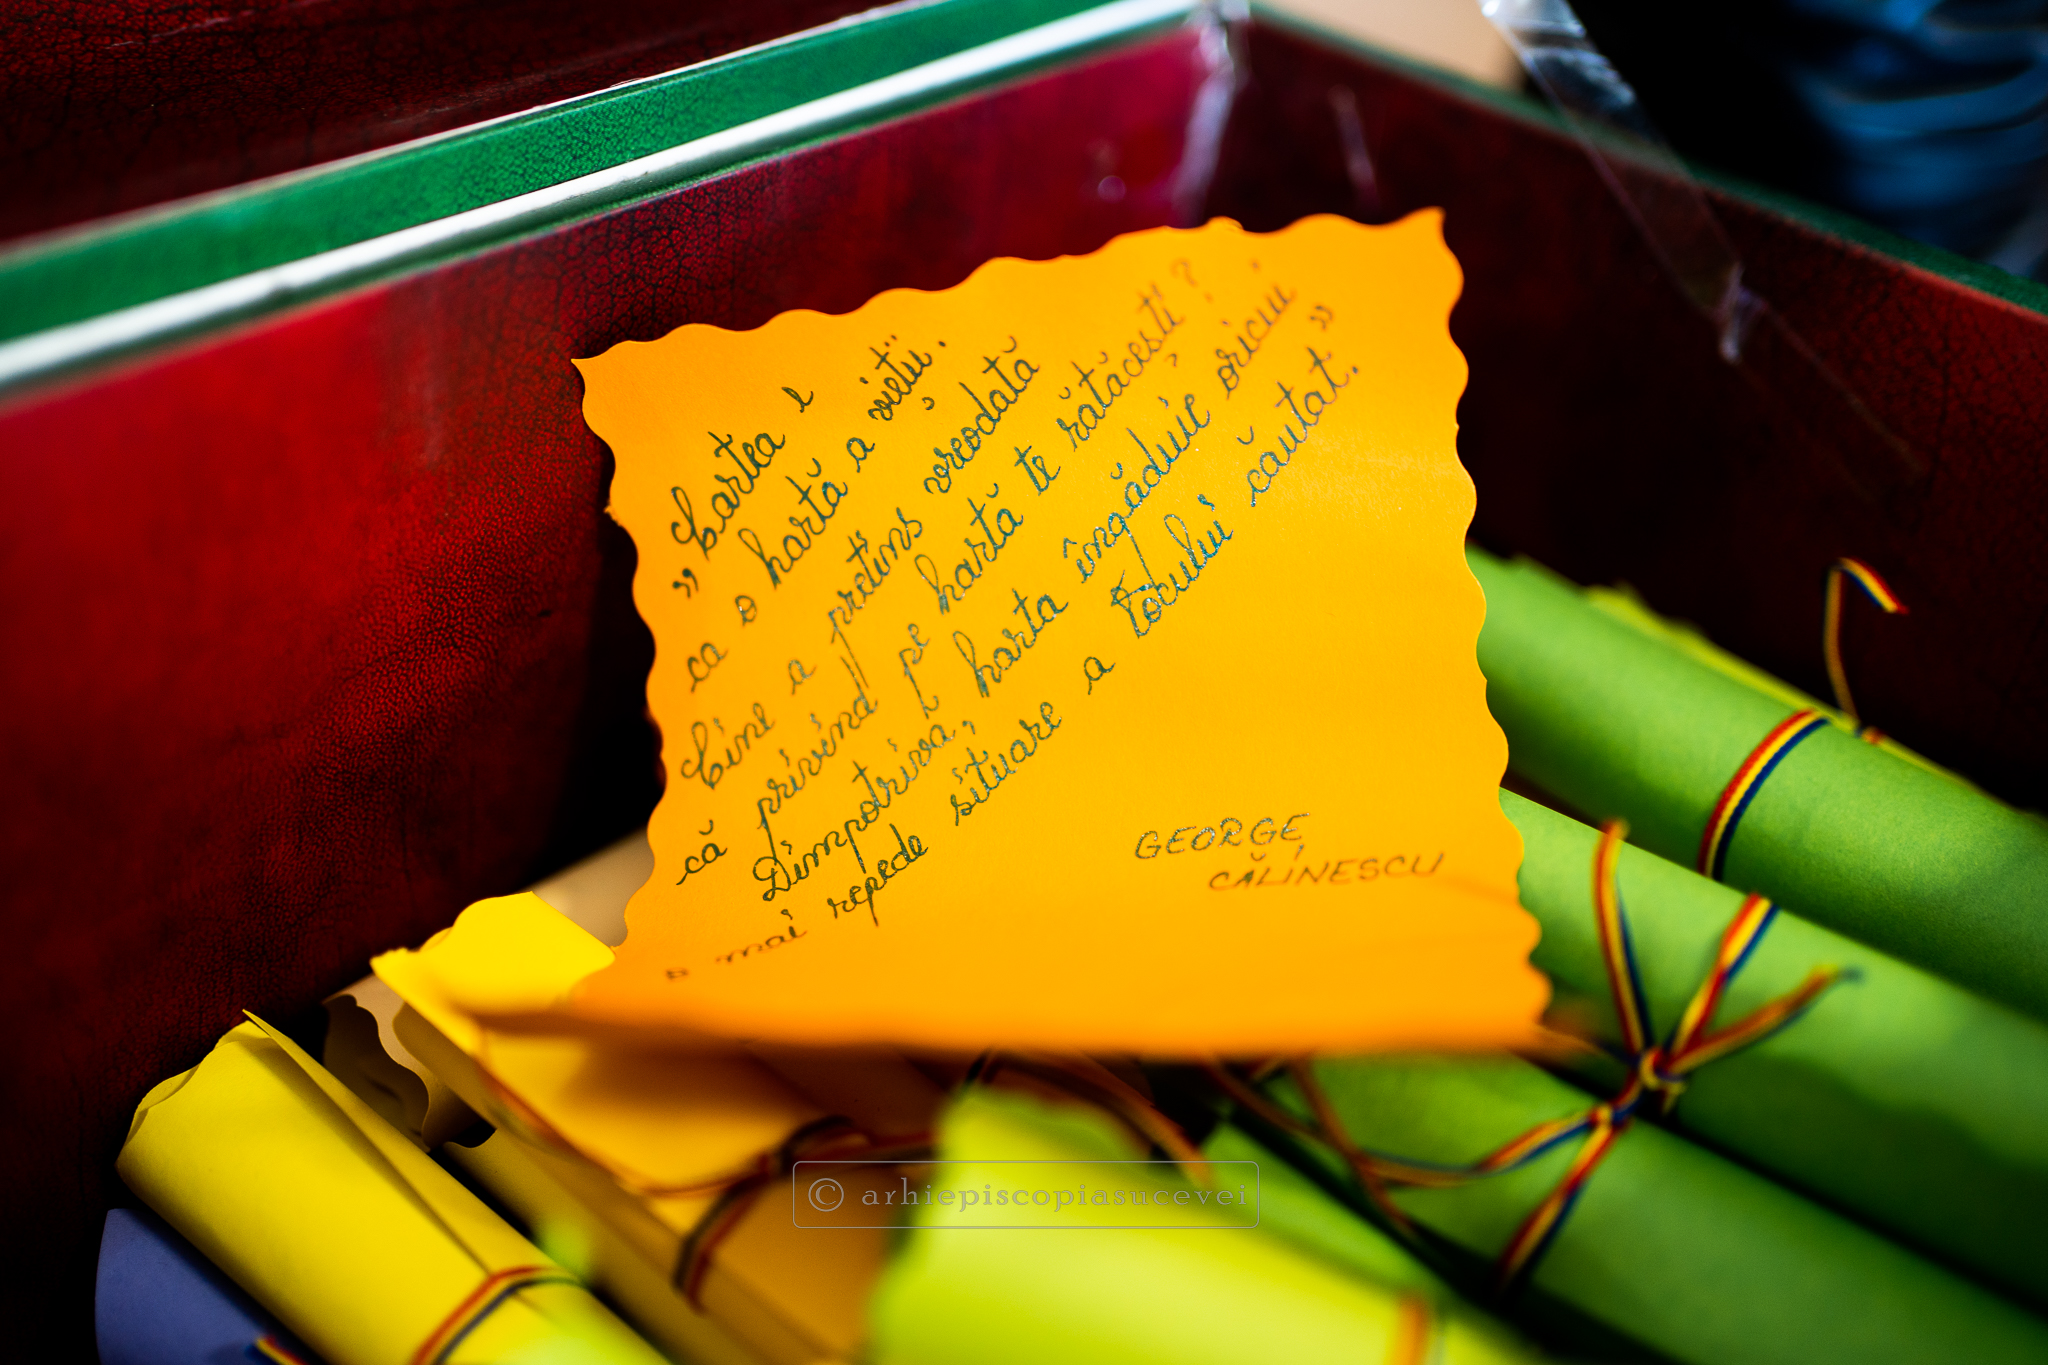 „Cartea e
ca o hartă a vieții.
Cine a pretins vreodată
că privind pe hartă te rătăcești?
Dimpotrivă, harta îngăduie oricui
o mai repede situare a locului căutat.”
GEORGE
CĂLINESCU
© arhiepiscopiasucevei